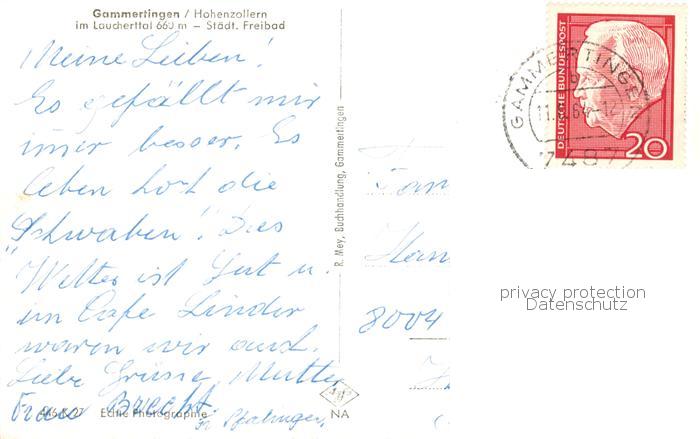 Gammertingen / Hohenzollern
im Laucherttal 660 m – Städt. Freibad
Meine Lieben!
Es gefällt mir
imer besser. Es
leben hoch die
"Schwaben". Das
Wetter ist gut u.
im Cafe Linder
waren wir auch.
Liebe Grüsse, Mutter
Frau Brecht
Echte Photographie
NA
R. Mey, Buchhandlung, Gammertingen
8004
GAMMERTINGEN
7487
DEUTSCHE BUNDESPOST
20
privacy protection
Datenschutz